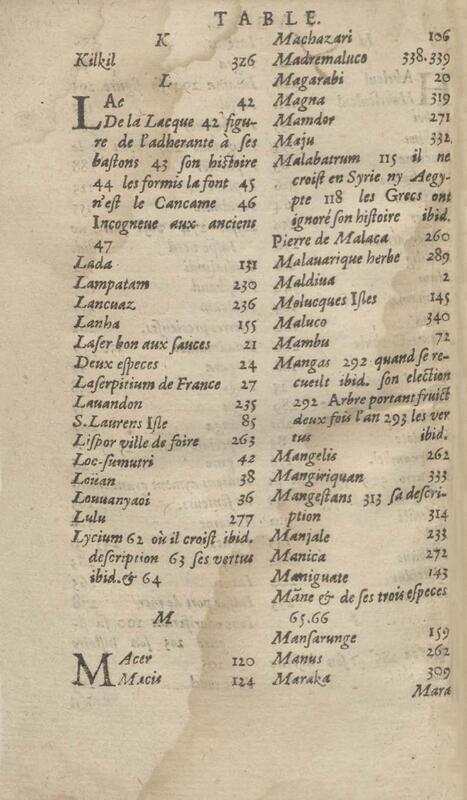 TABLE.
K
Kilkil 326
L
LAc 42
De la Lacque 42 figu-
re de l'adherante à ses
baſtons 43 ſon hiſtoire
44 les formis la font 45
n'eſt le Cancame 46
Incogneue aux anciens
47
Lada 131
Lampatam 230
Lancuaz 236
Lanha 155
Laſer bon aux ſauces 21
Deux eſpeces 24
Laſerpitium de France 27
Lauandon 235
S. Laurens Iſle 85
Liſpor ville de foire 263
Loc-ſumutri 42
Loüan 38
Louuanyaoi 36
Lulu 277
Lycium 62 où il croiſt ibid.
deſcription 63 ſes vertus
ibid. & 64
M
MAcer 120
Macis 124
Machazari 106
Madremaluco 338.339
Magarabi 20
Magna 319
Mamdor 271
Maju 332
Malabatrum 115 il ne
croiſt en Syrie ny Aegy-
pte 118 les Grecs ont
ignoré ſon hiſtoire ibid.
Pierre de Malaca 260
Malauarique herbe 289
Maldiua 2
Molucques Iſles 145
Maluco 340
Mambu 72
Mangas 292 quand ſe re-
cueilt ibid. ſon election
292 Arbre portant fruict
deux fois l'an 293 les ver
tus ibid.
Mangelis 262
Mangiriquan 333
Mangeſtans 313 ſa deſcri-
ption 314
Manjale 233
Manica 272
Maniguate 143
Mãne & de ſes trois eſpeces
65.66
Manſarunge 159
Manus 262
Maraka 309
Mara